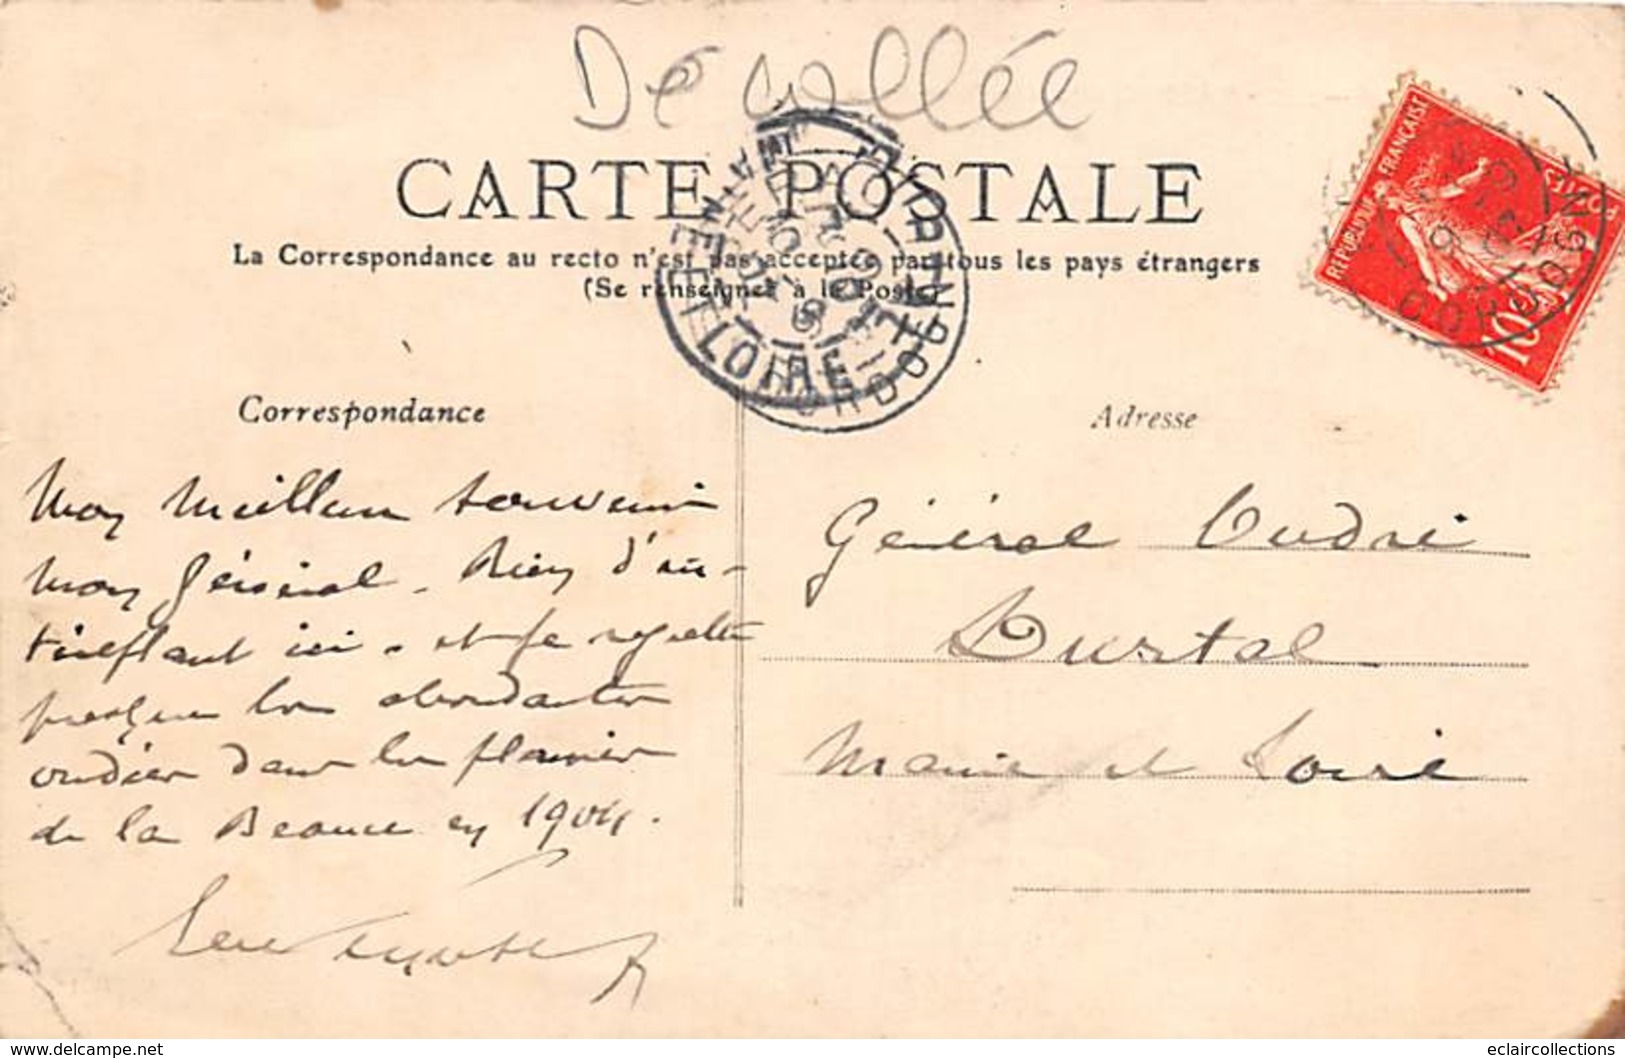 De vallée
CARTE POSTALE
La Correspondance au recto n'est pas acceptée par tous les pays étrangers
(Se renseigner à la Poste)
RÉPUBLIQUE FRANÇAISE
10
POSTES
MAINE ET LOIRE
DORDOGNE
Correspondance
Adresse
Mon meilleur souvenir
mon général. Rien d'in-
ici. et je regrette
presque les
dans les plaines
de la Beauce en 1904.
Général
Durtal
Maine et Loire
eclaircollections
www.delcampe.net